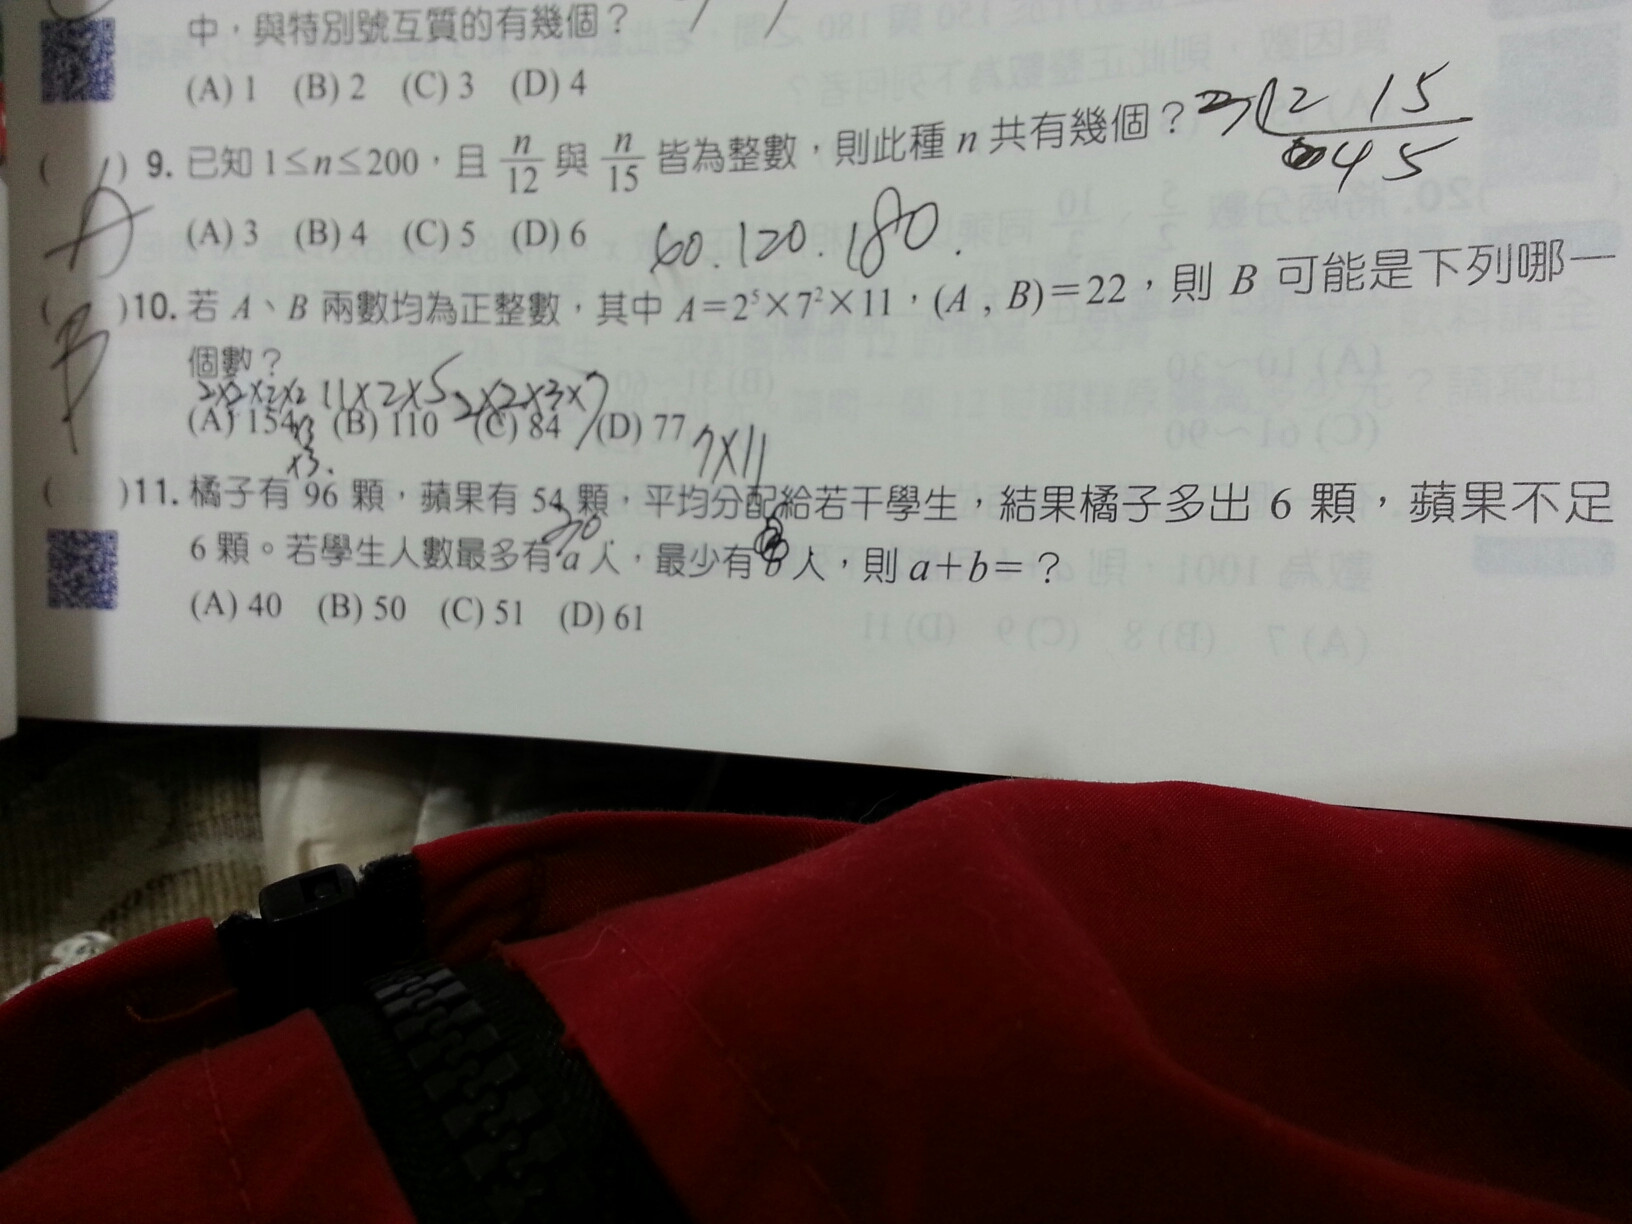 中,與特別號互質的有幾個?
(A) 1 (B) 2 (C) 3 (D) 4
( ) 9. 已知 1≤n≤200,且 n/12 與 n/15 皆為整數,則此種 n 共有幾個?
3 12 15
4 5
A
(A) 3 (B) 4 (C) 5 (D) 6
60.120.180.
( ) 10. 若 A、B 兩數均為正整數,其中 A=2⁵×7²×11,(A , B)=22,則 B 可能是下列哪一
B
個數?
2×2×2×2 11×2×5 2×2×3×7
(A) 154 (B) 110 (C) 84 (D) 77
×3 7×11
×3.
( ) 11. 橘子有 96 顆,蘋果有 54 顆,平均分配給若干學生,結果橘子多出 6 顆,蘋果不足
6 顆。若學生人數最多有 a 人,最少有 b 人,則 a+b=?
(A) 40 (B) 50 (C) 51 (D) 61